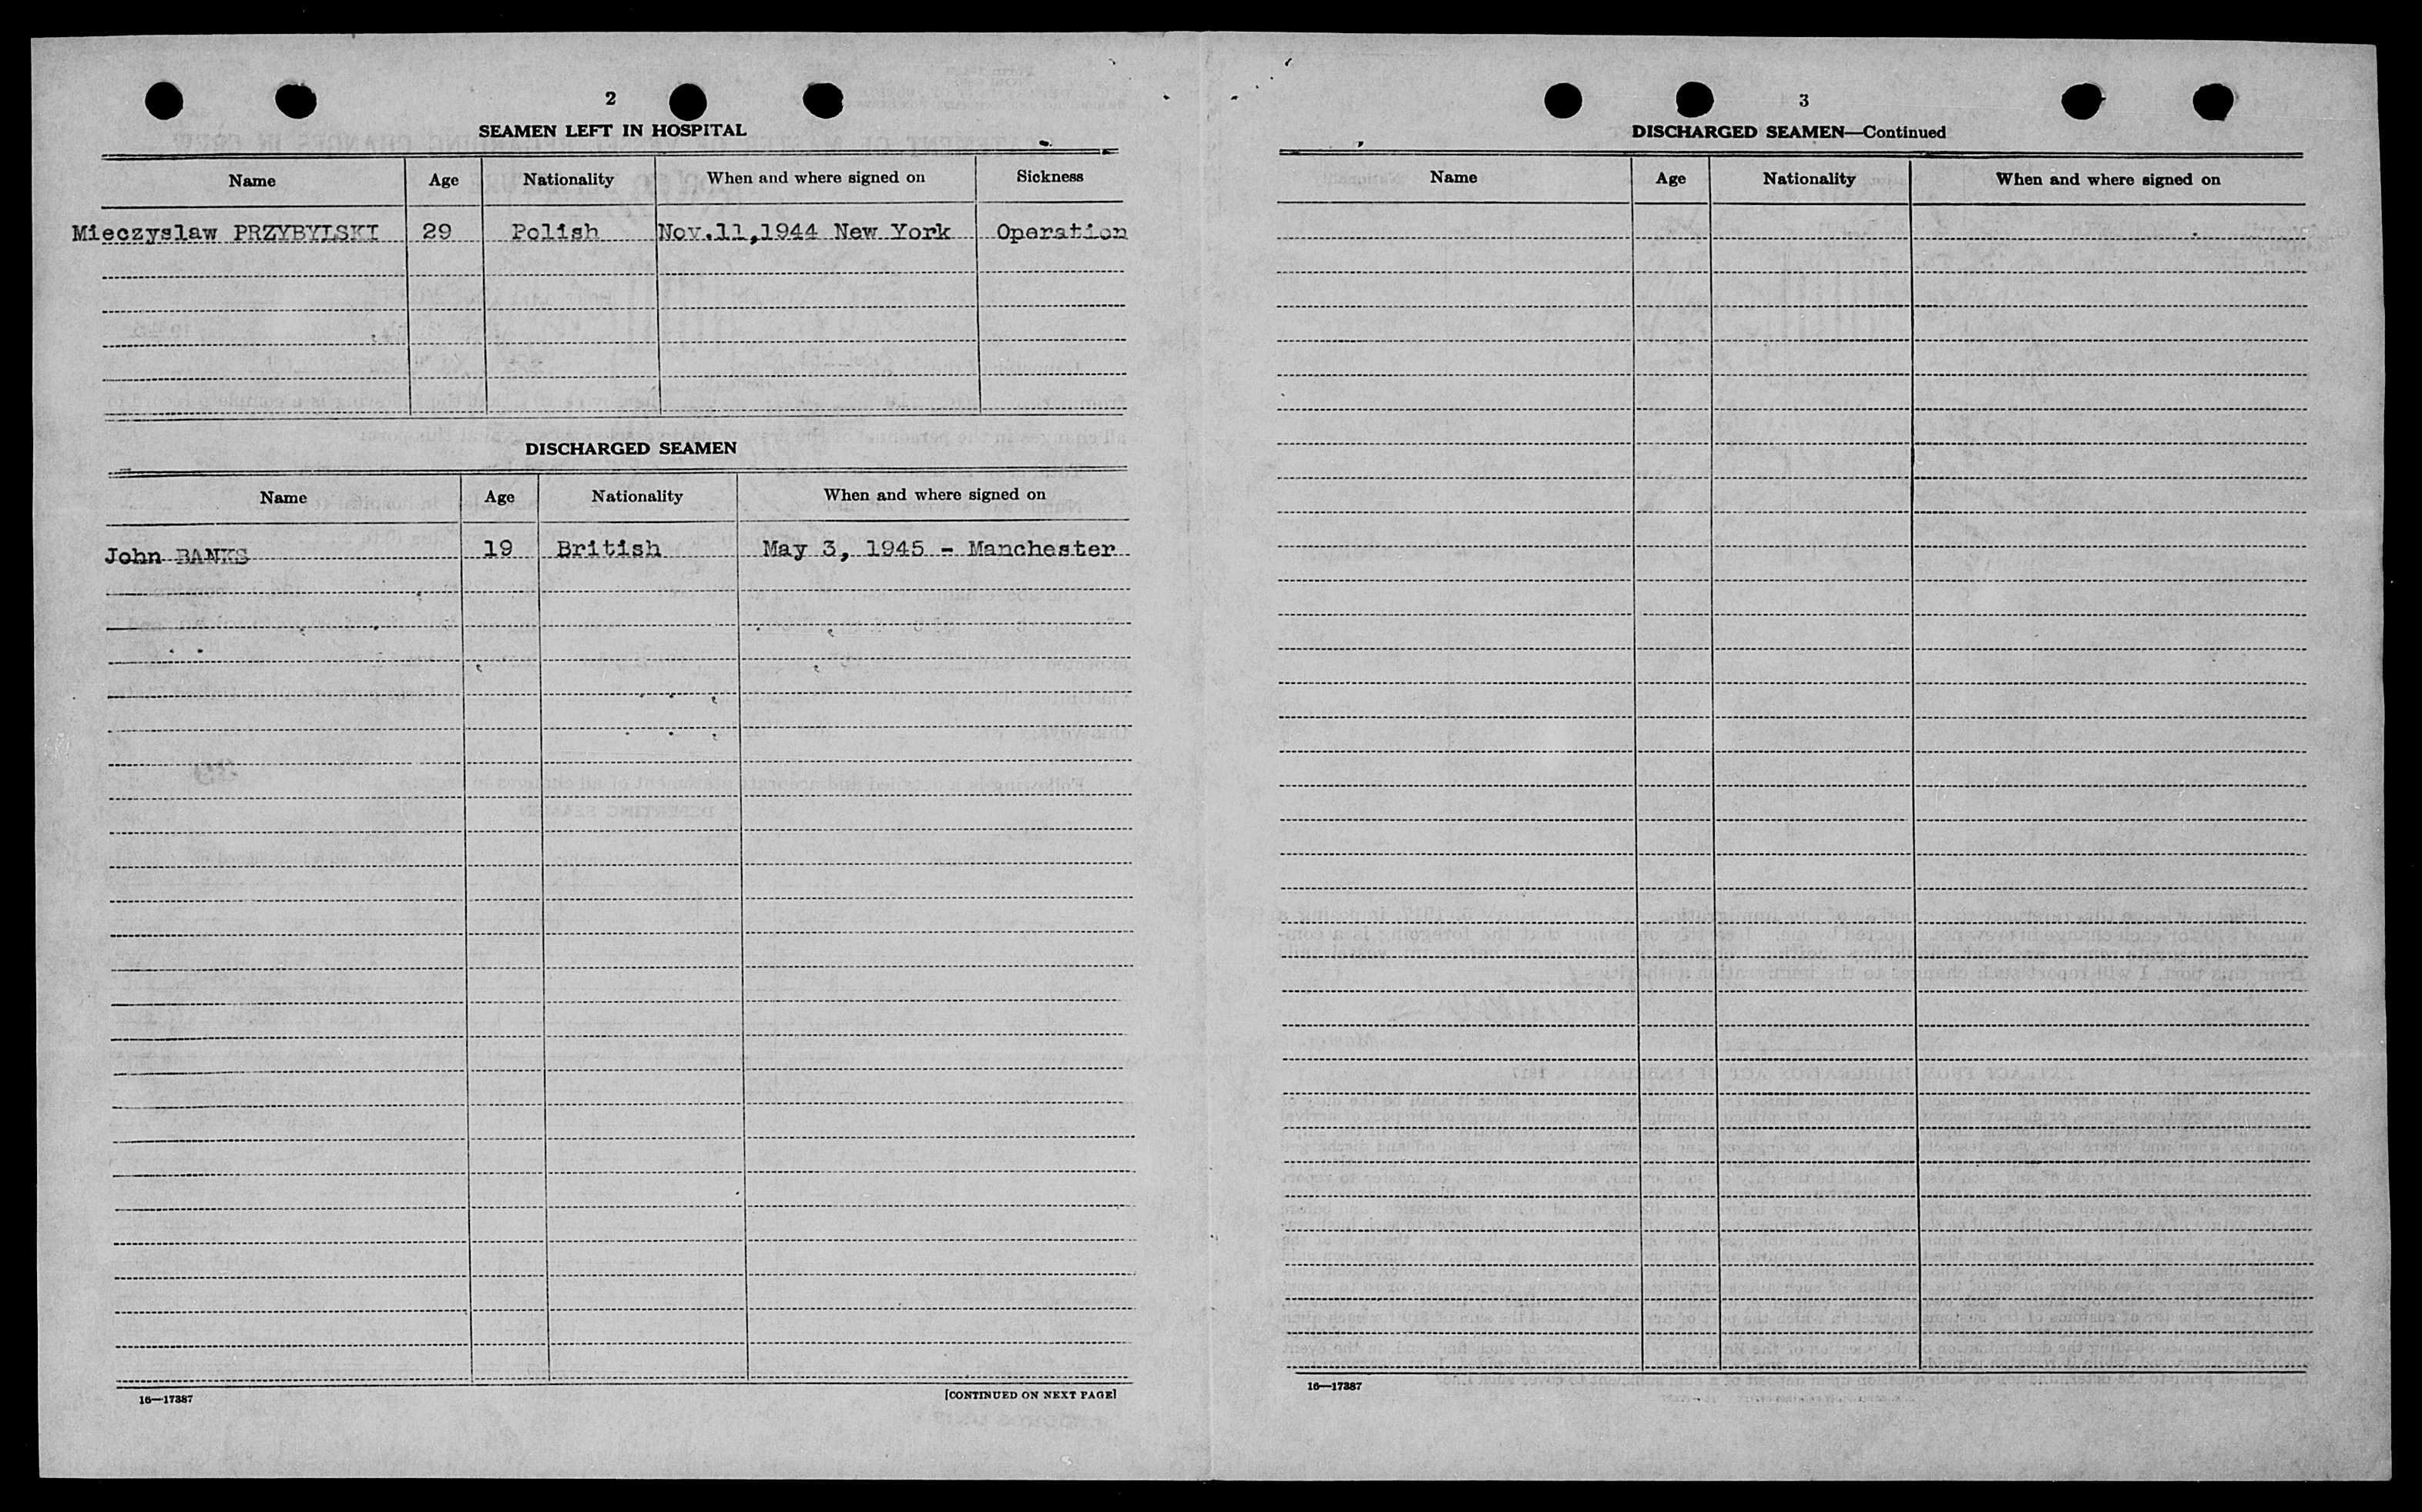 2
SEAMEN LEFT IN HOSPITAL
Name Age Nationality When and where signed on Sickness
Mieczyslaw PRZYBYLSKI 29 Polish Nov.11,1944 New York Operation
DISCHARGED SEAMEN
Name Age Nationality When and where signed on
John BANKS 19 British May 3, 1945 - Manchester
16—17387 [CONTINUED ON NEXT PAGE]
3
DISCHARGED SEAMEN—Continued
Name Age Nationality When and where signed on
16—17387